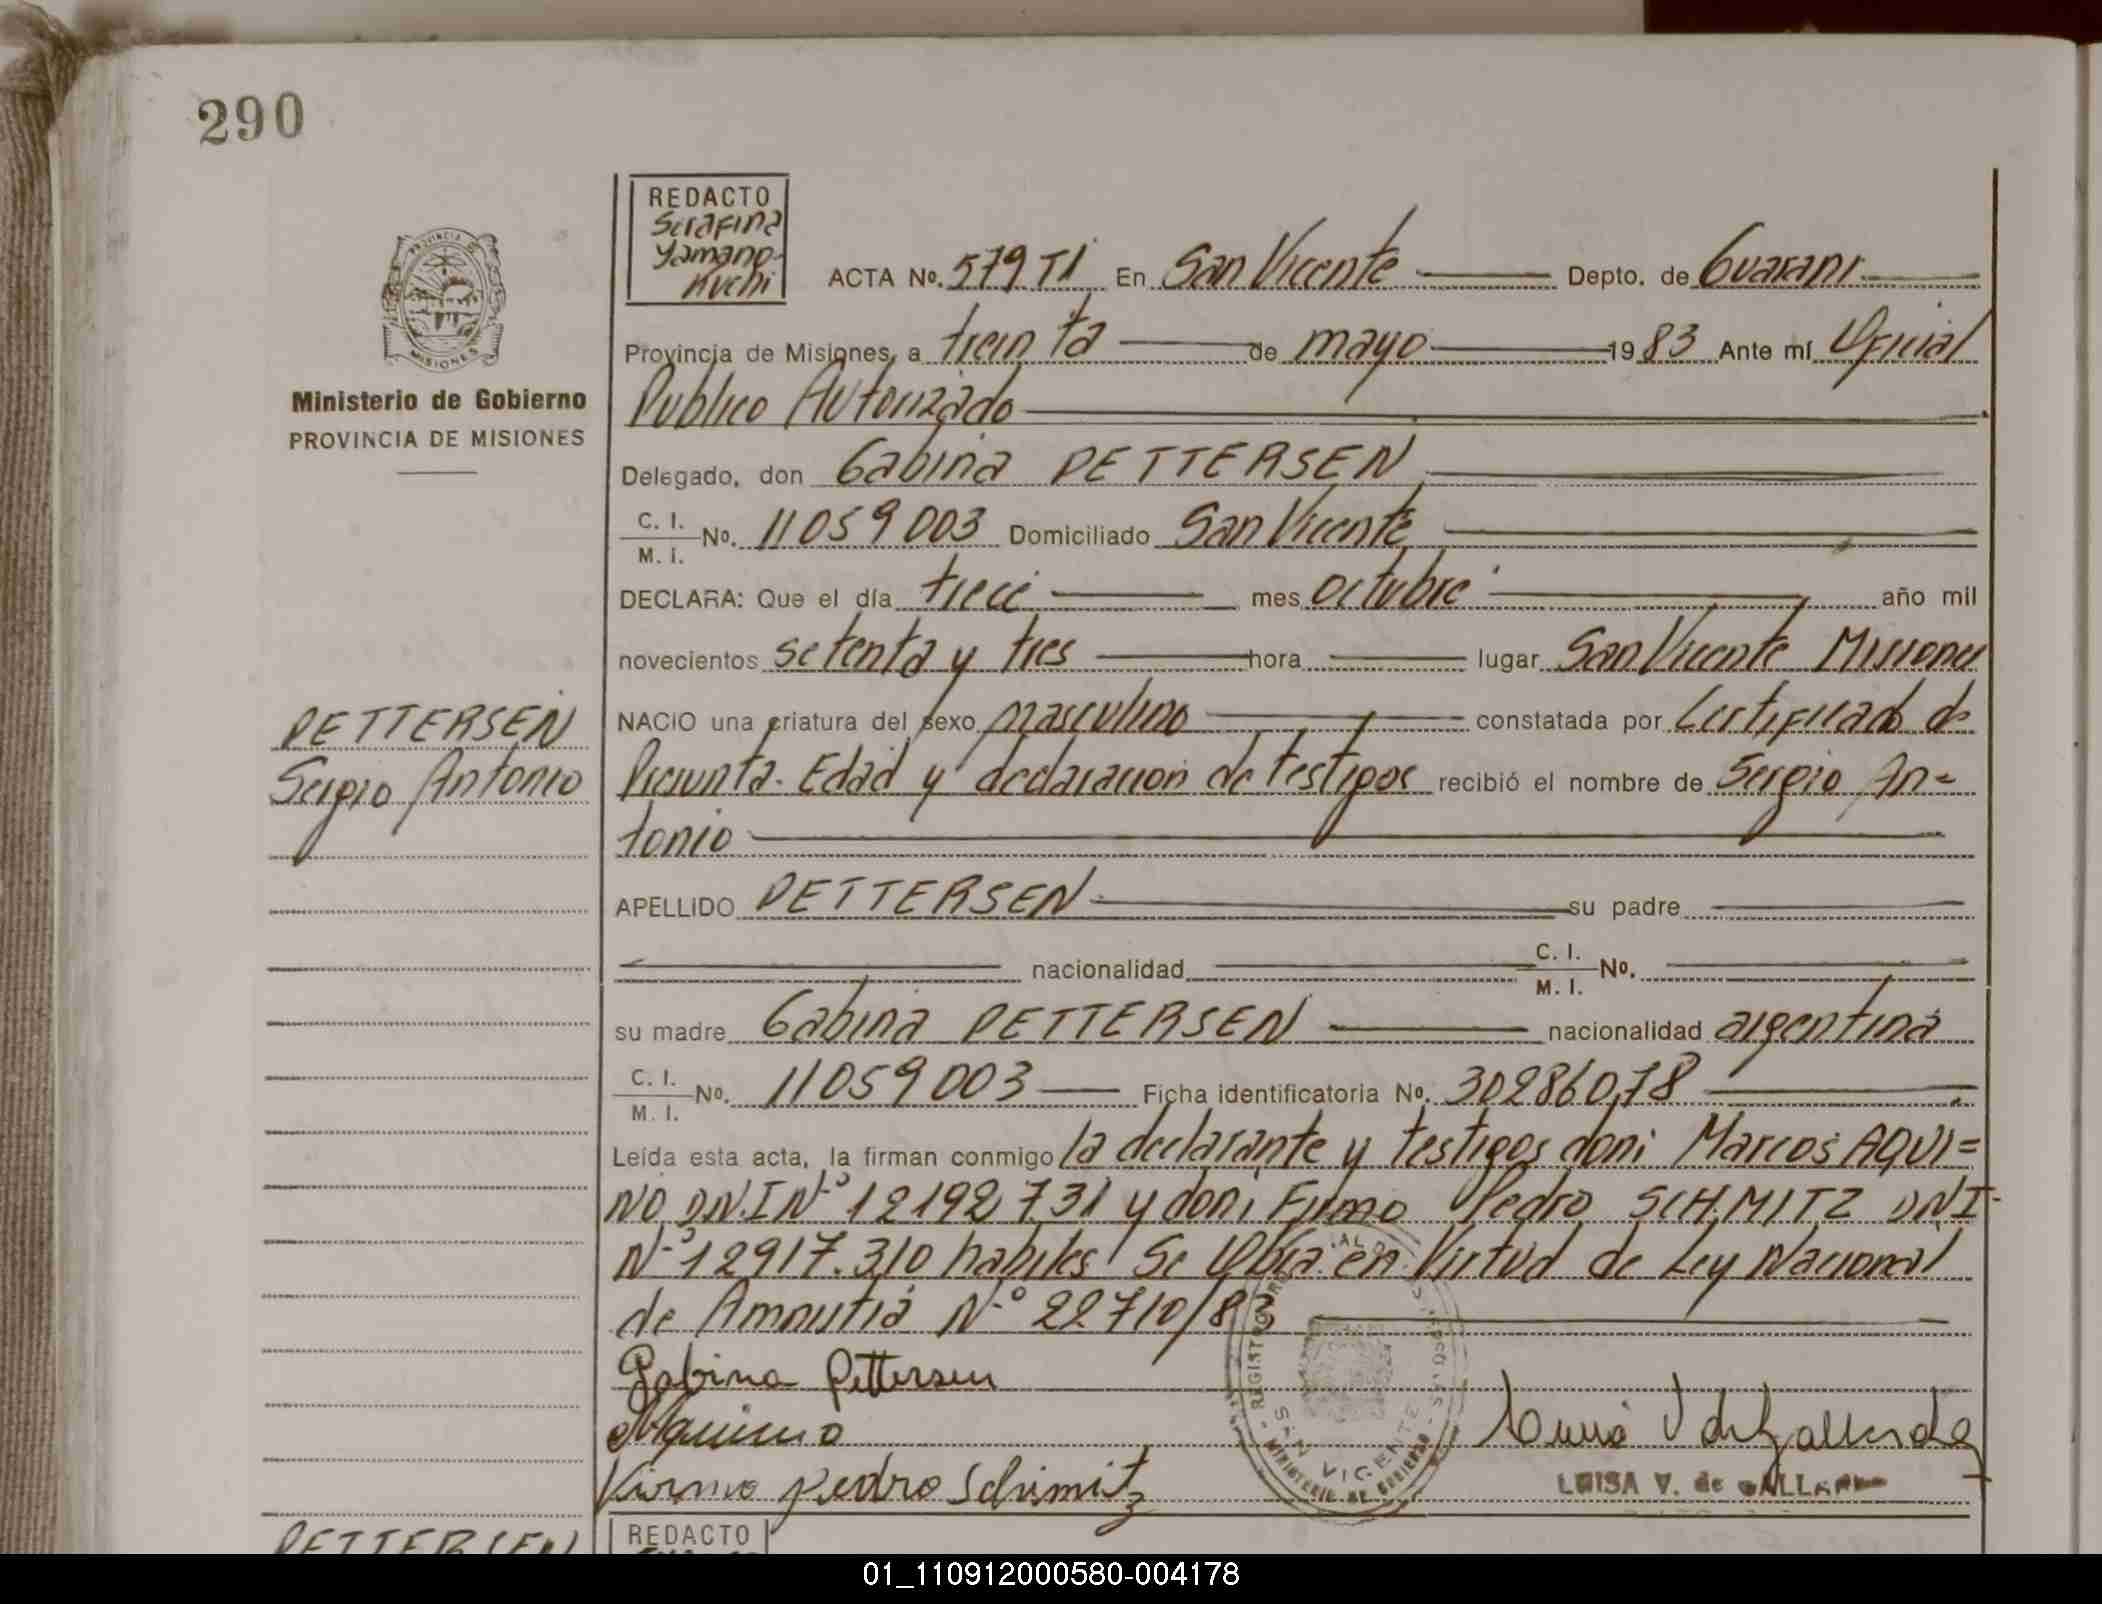 290
REDACTO
Serafina
Yamano-
kuchi
PROVINCIA DE
MISIONES
Ministerio de Gobierno
PROVINCIA DE MISIONES
ACTA No. 579 TI En San Vicente Depto. de Guarani
Provincia de Misiones, a treinta de mayo 1983 Ante mí Oficial
Publico Autorizado
Delegado, don Gabina PETTERSEN
C. I.
M. I. No. 11059003 Domiciliado San Vicente
DECLARA: Que el día trece mes octubre año mil
novecientos setenta y tres hora lugar San Vicente Misiones
NACIO una criatura del sexo masculino constatada por Certificado de
Presunta. Edad y declaracion de testigos recibió el nombre de Sergio An=
tonio
PETTERSEN
Sergio Antonio
APELLIDO PETTERSEN su padre
nacionalidad C. I.
M. I. No.
su madre Gabina PETTERSEN nacionalidad argentina
C. I.
M. I. No. 11059003 Ficha identificatoria No. 30286078
Leída esta acta, la firman conmigo la declarante y testigos don: Marcos AQUI=
NO DN.I Nº 12192731 y don: Firmo Pedro SCHMITZ DNI-
Nº 12917.310 habiles Se Obra en Virtud de Ley Nacional
de Amnistia Nº 22710/83
Gabina Pettersen
Aquino
Firmo pedro Schmitz
SAN VICENTE
MINISTERIO DE GOBIERNO
LUISA V. de GALLARDO
PETTERSEN
REDACTO
01_110912000580-004178